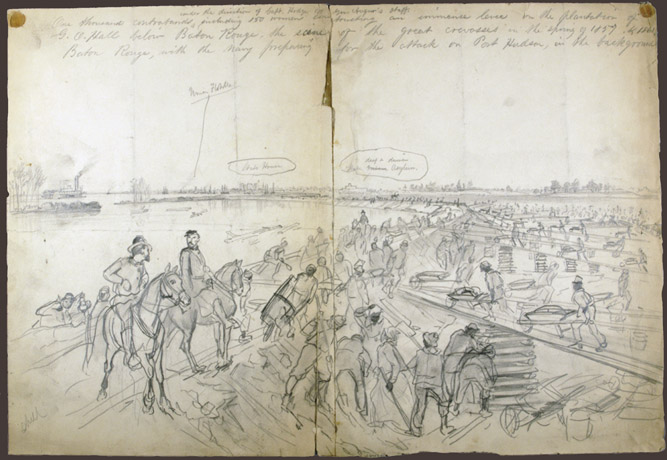 under the direction of Capt. Hodge of Gen Augur's staff
One thousand contrabands, including 150 women constructing an immense levee on the plantation of
G. A. Hall below Baton Rouge, the scene of the great crevasses in the spring of 1859
Baton Rouge, with the Navy preparing for the attack on Port Hudson, in the background
State House
Deaf & Dumb
Asylum